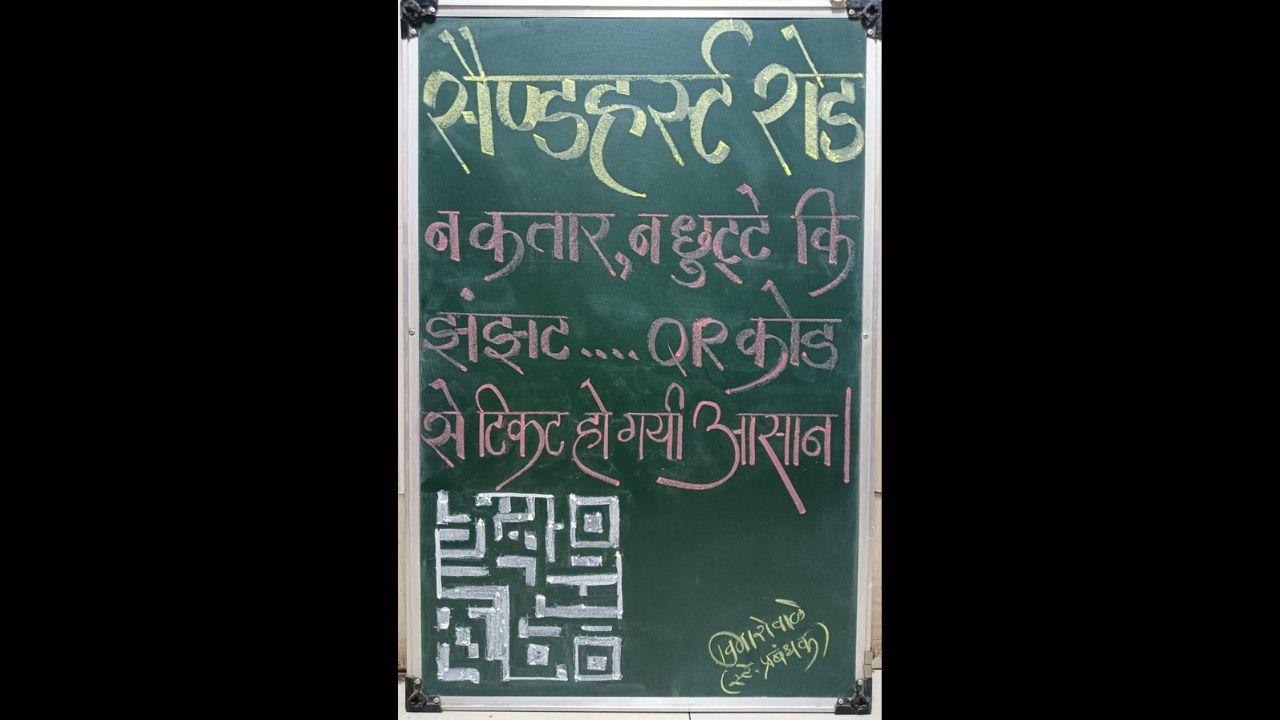 सैण्डहर्स्ट रोड
न कतार, न छुट्टे कि
झंझट.... QR कोड
से टिकट हो गयी आसान।
(स्टे. प्रबंधक)